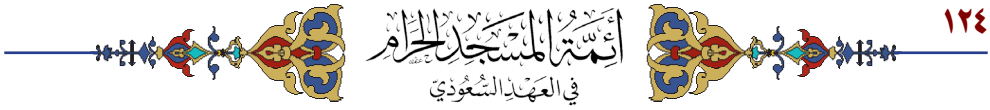 ١٢٤
أَئِمَّةُ المَسْجِدِ الحَرَامِ
فِي العَهْدِ السُّعُودِيِّ